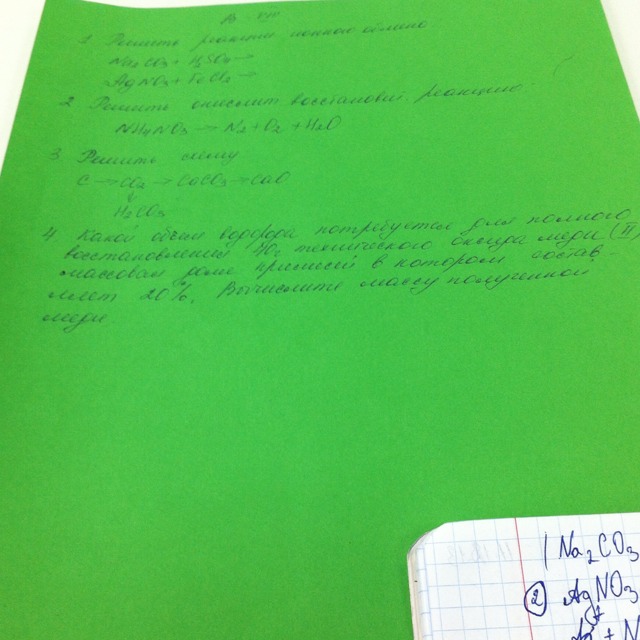 1 Решить реакции ионного обмена
Na2CO3 + H2SO4 →
AgNO3 + FeCl2 →
2 Решить окислит восстановит реакцию
NH4NO3 → N2 + O2 + H2O
3 Решить схему
C → CO2 → CaCO3 → CaO
↓
H2CO3
4 Какой объем водорода потребуется для полного
восстановления 40г технического оксида меди (II)
массовая доля примесей в котором состав-
ляет 20%. Вычислите массу полученной
меди
1 Na2CO3
2 AgNO3